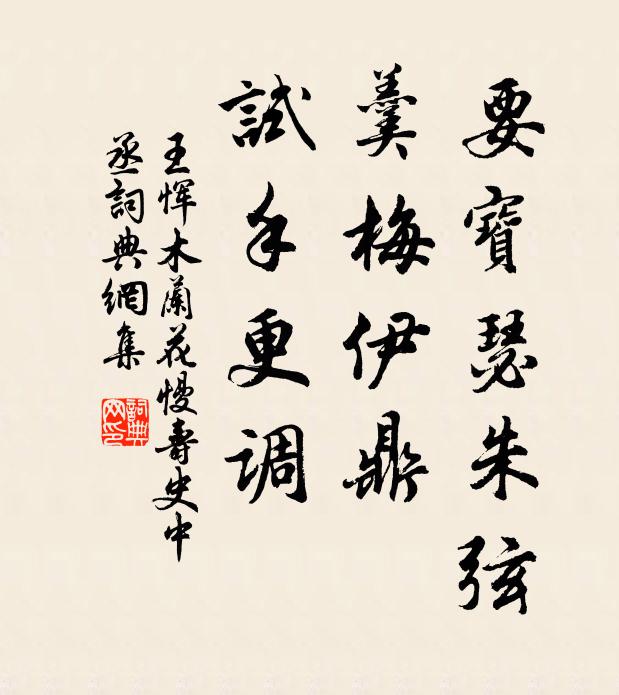 要寶瑟朱弦
羹梅伊鼎
試手更调
王惲木蘭花慢壽史中
丞詞典網集
詞典
网印